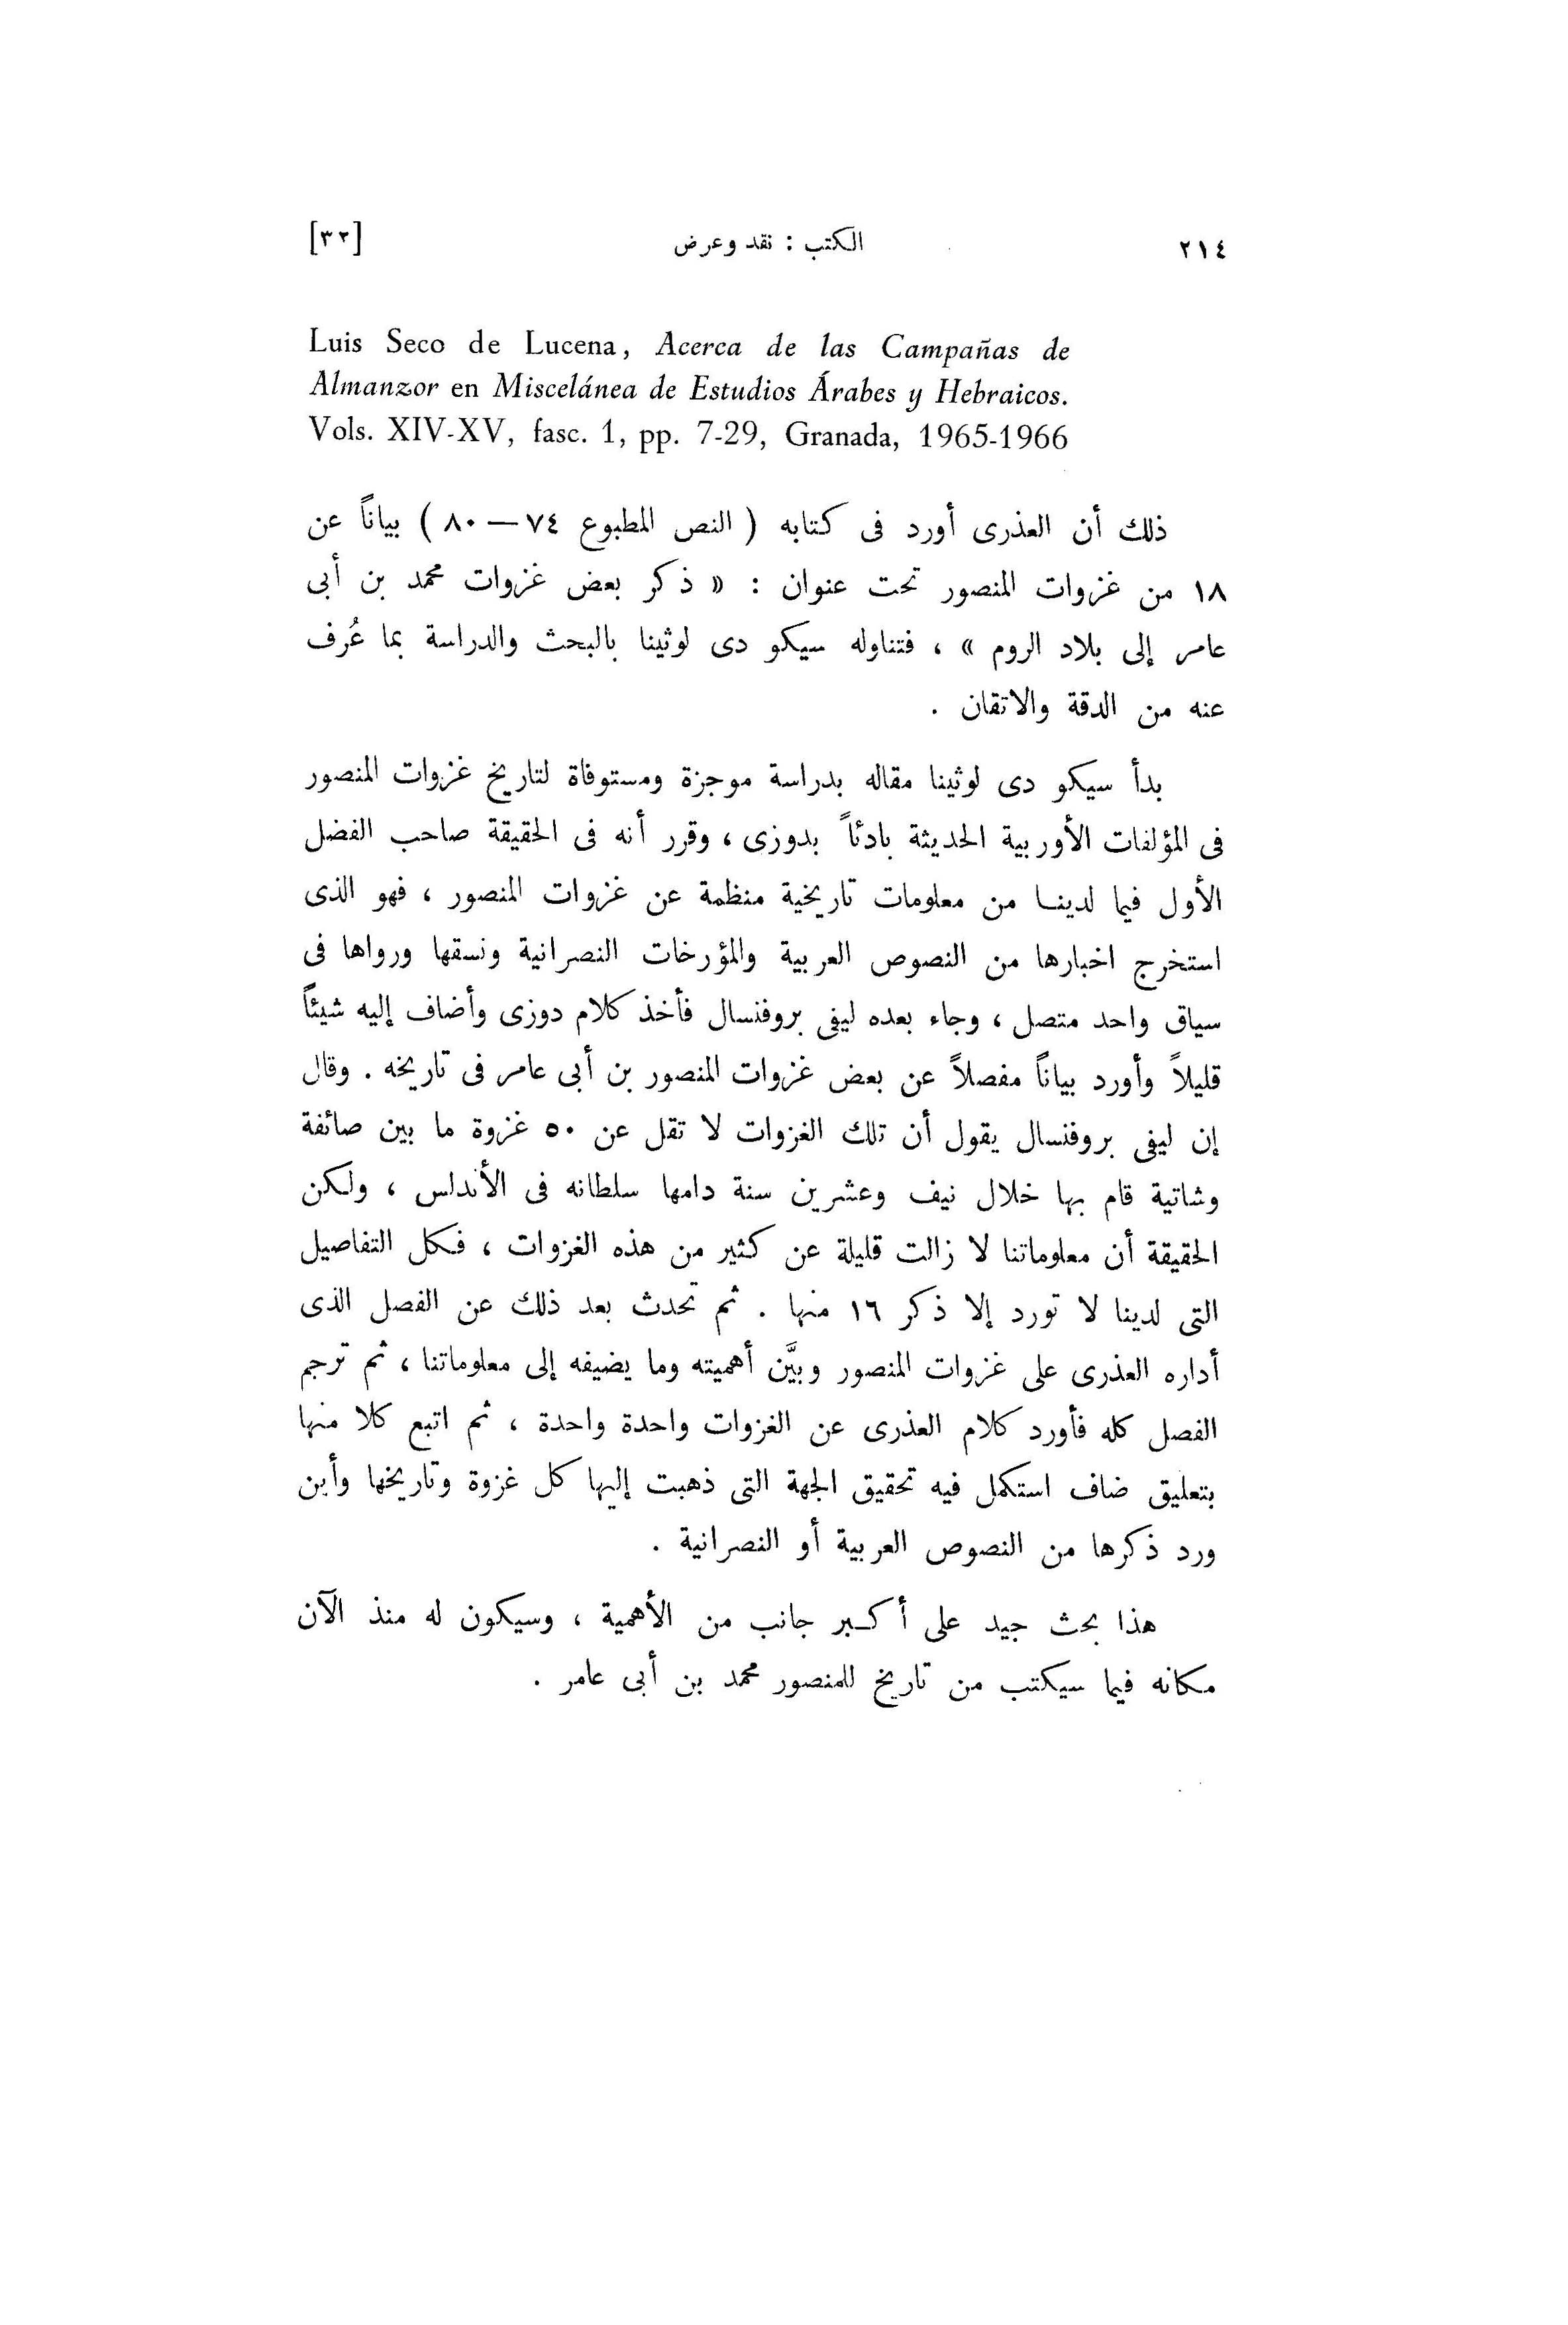 ٢١٤ الكتب : نقد وعرض [٣٢]
Luis Seco de Lucena, Acerca de las Campañas de
Almanzor en Miscelánea de Estudios Árabes y Hebraicos.
Vols. XIV-XV, fasc. 1, pp. 7-29, Granada, 1965-1966
ذلك أن العذرى أورد فى كتابه ( النص المطبوع ٧٤ — ٨٠ ) بياناً عن
١٨ من غزوات المنصور تحت عنوان : « ذكر بعض غزوات محمد بن أبى
عامر إلى بلاد الروم » ، فتناوله سيكو دى لوثينا بالبحث والدراسة بما عُرف
عنه من الدقة والاتقان .
بدأ سيكو دى لوثينا مقاله بدراسة موجزة ومستوفاة لتاريخ غزوات المنصور
فى المؤلفات الأوربية الحديثة بادئاً بدوزى ، وقرر أنه فى الحقيقة صاحب الفضل
الأول فيما لدينا من معلومات تاريخية منظمة عن غزوات المنصور ، فهو الذى
استخرج اخبارها من النصوص العربية والمؤرخات النصرانية ونسقها ورواها فى
سياق واحد متصل ، وجاء بعده ليفى بروفنسال فأخذ كلام دوزى وأضاف إليه شيئاً
قليلاً وأورد بياناً مفصلاً عن بعض غزوات المنصور بن أبى عامر فى تاريخه . وقال
إن ليفى بروفنسال يقول أن تلك الغزوات لا تقل عن ٥٠ غزوة ما بين صائفة
وشاتية قام بها خلال نيف وعشرين سنة دامها سلطانه فى الأندلس ، ولكن
الحقيقة أن معلوماتنا لا زالت قليلة عن كثير من هذه الغزوات ، فكل التفاصيل
التى لدينا لا تورد إلا ذكر ١٦ منها . ثم تحدث بعد ذلك عن الفصل الذى
أداره العذرى على غزوات المنصور وبيَّن أهميته وما يضيفه إلى معلوماتنا ، ثم ترجم
الفصل كله فأورد كلام العذرى عن الغزوات واحدة واحدة ، ثم اتبع كلا منها
بتعليق ضاف استكمل فيه تحقيق الجهة التى ذهبت إليها كل غزوة وتاريخها وأين
ورد ذكرها من النصوص العربية أو النصرانية .
هذا بحث جيد على أكبر جانب من الأهمية ، وسيكون له منذ الآن
مكانه فيما سيكتب من تاريخ للمنصور محمد بن أبى عامر .